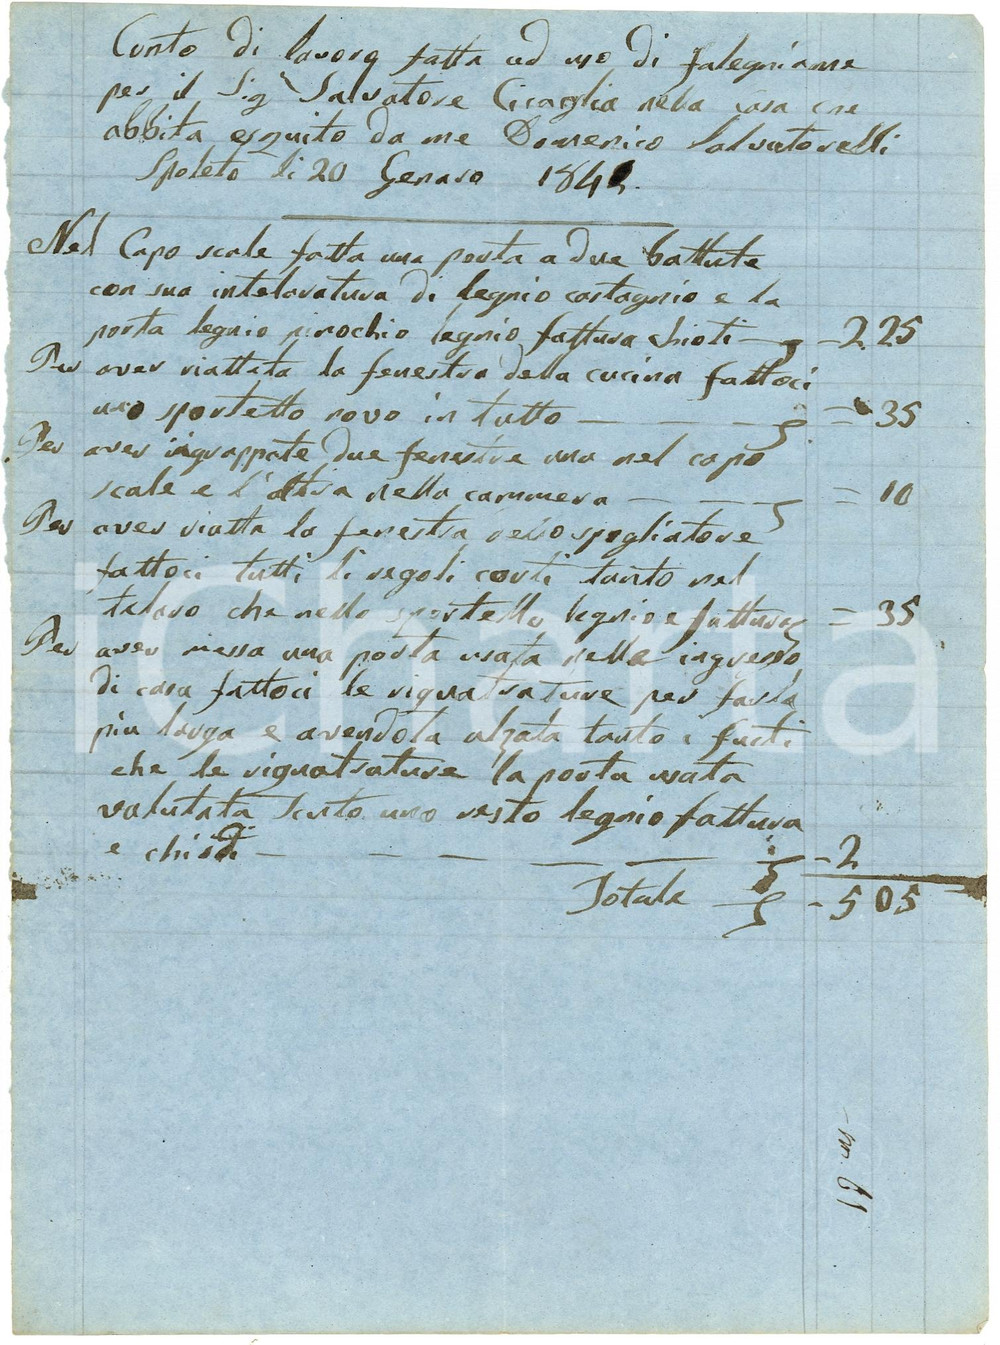 Conto di lavora fatta ad uso di falegniame
per il Sig Salvatore Cicaglia nella casa che
abbita eseguito da me Domenico Salvatorelli
Spoleto li 20 Genaro 184
Nel Capo scale fatta una porta a due battute
con sua intelaratura di legnio castagnio e la
porta legnio pirochio legnio fattura chioti - 2.25
Per aver riattata la fenestra della cucina fattoci
uno sportello novo in tutto = 35
Per aver ingrappate due fenestre una nel capo
scale e l'altra nella cammera = 10
Per aver riatta la fenestra dello spogliatore
fattoci tutti li regoli corti tanto nel
telaro che nello sportello legnio e fattura = 35
Per aver messa una porta usata nelle ingresso
di casa fattoci le riquatrature per farla
piu larga e avendola alzata tanto i fusti
che le riquatrature la porta usata
valutata scuto uno resto legnio fattura
e chiodi - 2
Totale - 5 05
iCharta